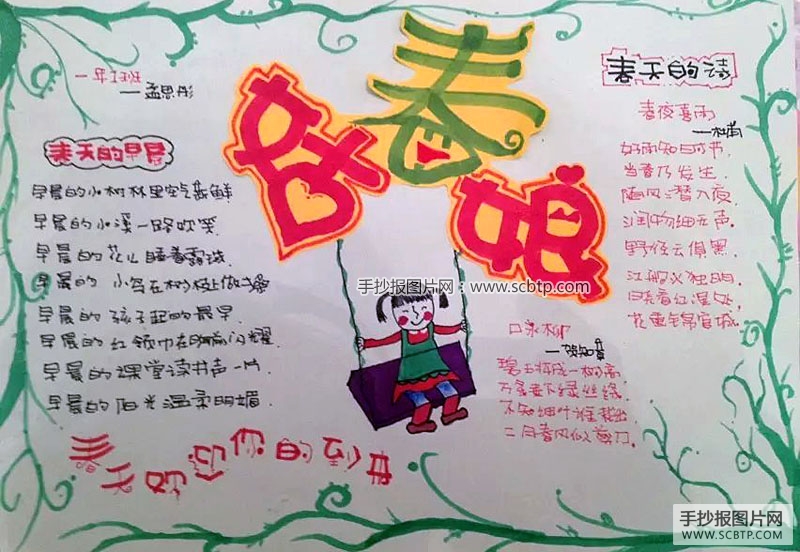 春姑娘
一年 班
—孟思彤
春天的早晨
早晨的小树林里空气新鲜
早晨的小溪一路欢笑
早晨的花儿 着露珠
早晨的 小鸟在树枝上做
早晨的 孩子起的最早
早晨的 红领巾在胸前闪耀
早晨的课堂读书声一片
早晨的 阳光温柔明媚
春天 你的到来
春天的诗
春夜喜雨
—杜甫
好雨知时节,
当春乃发生.
随风潜入夜,
润物细无声.
野径云俱黑,
江船火独明.
晓看红湿处,
花重锦官城.
咏柳
—贺知章
碧玉妆成一树高
万条垂下绿丝绦
不知细叶谁裁出
二月春风似剪刀.
手抄报图片网:www.scbtp.com
手抄报图片网
WWW.SCBTP.COM